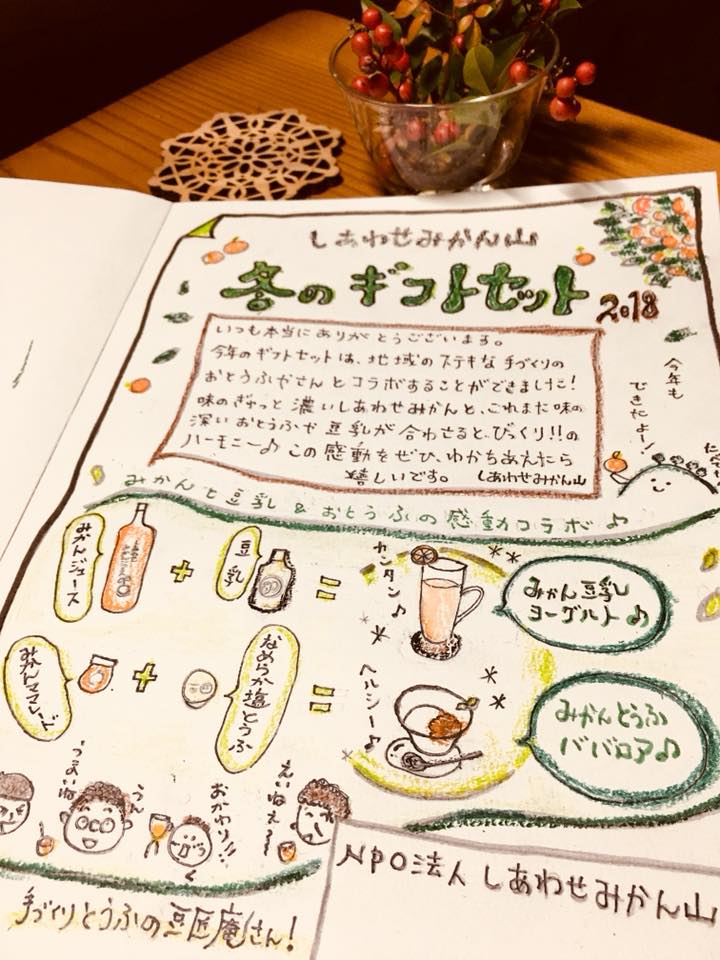 しあわせみかん山
冬のギフトセット 2018
いつも本当にありがとうございます。
今年のギフトセットは、地域のステキな手づくりの
おとうふやさんとコラボすることができました!
味のぎゅっと濃いしあわせみかんと、これまた味の
深いおとうふや豆乳が合わせると、びっくり!!の
ハーモニー♪この感動をぜひ、わかちあえたら
嬉しいです。 しあわせみかん山
今年も
できたよー!
みかんと豆乳&おとうふの感動コラボ♪
みかんジュース
+
豆乳
=
カンタン♪
みかん豆乳
ヨーグルト♪
みかんママレード
+
なめらか塩とうふ
=
ヘルシー♪
みかんとうふ
ババロア♪
うまいね
うん
おかわり!!
ええねぇ〜
手づくりとうふの豆匠庵さん!
NPO法人 しあわせみかん山